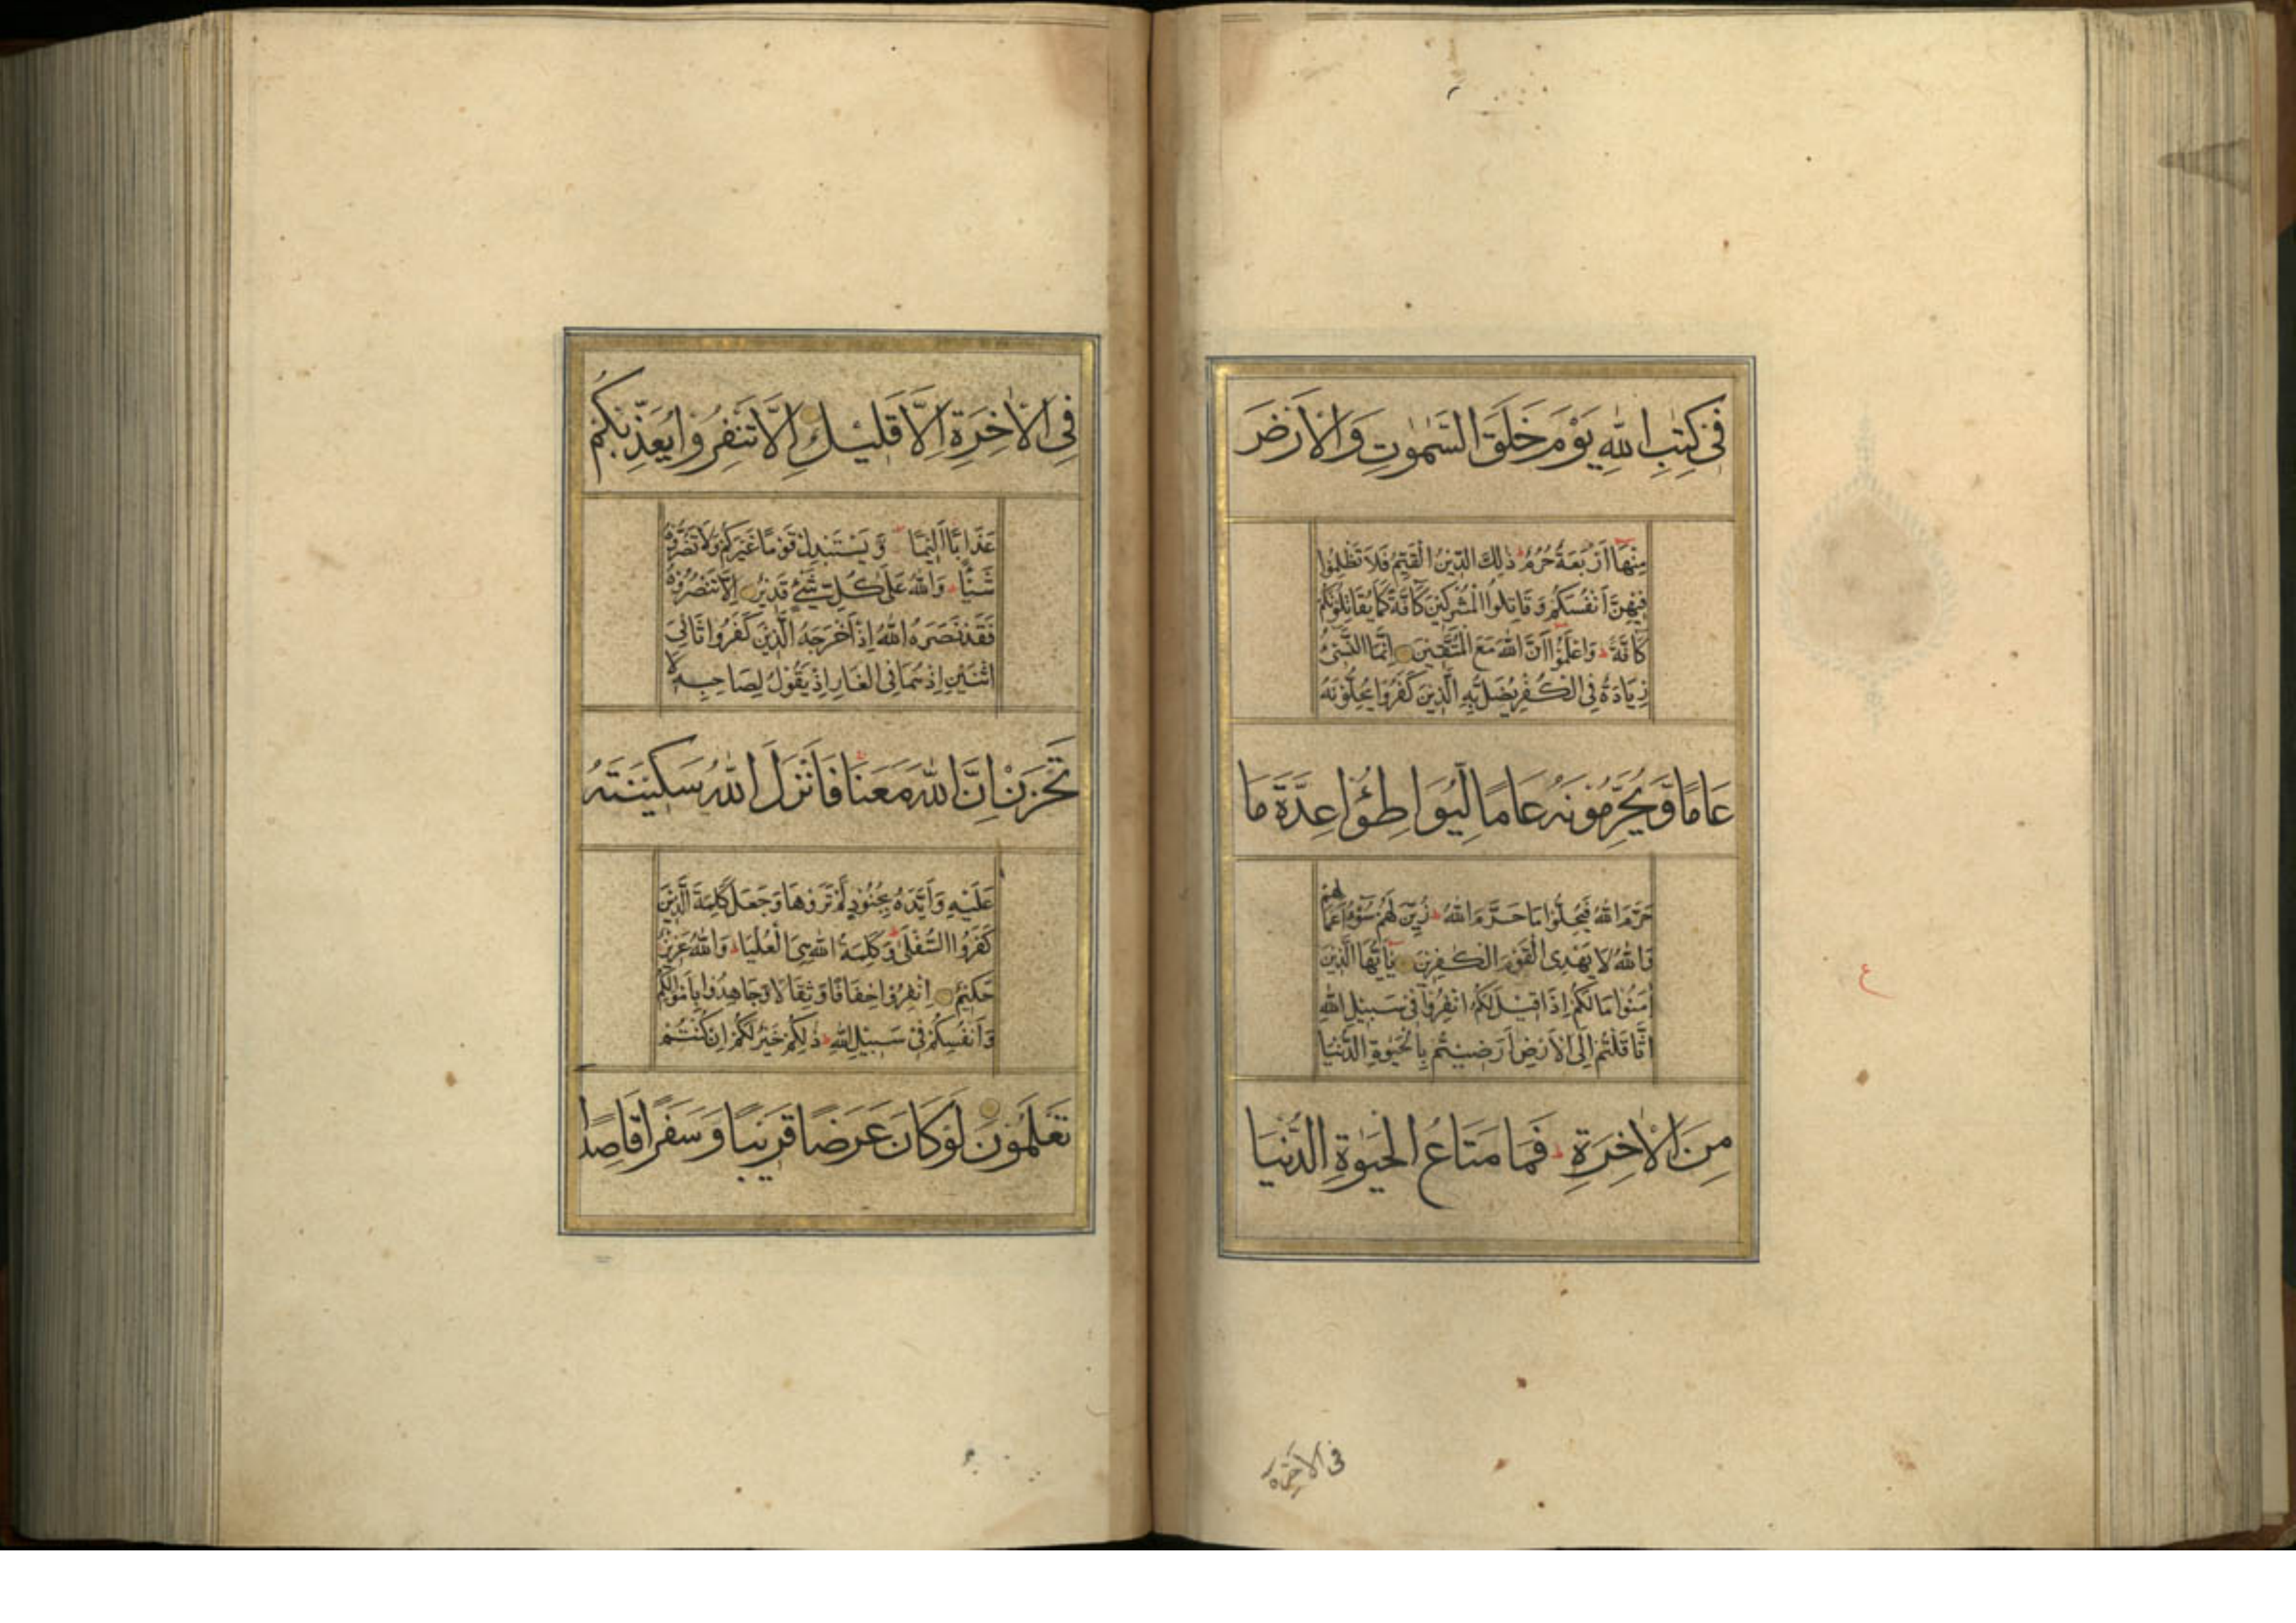 فِى كِتٰبِ اللهِ يَوْمَ خَلَقَ السَّمٰوٰتِ وَالْاَرْضَ
مِنْهَا اَرْبَعَةٌ حُرُمٌ ذٰلِكَ الدِّيْنُ الْقَيِّمُ فَلَا تَظْلِمُوْا
فِيْهِنَّ اَنْفُسَكُمْ وَقَاتِلُوا الْمُشْرِكِيْنَ كَافَّةً كَمَا يُقَاتِلُوْنَكُمْ
كَافَّةً وَاعْلَمُوْا اَنَّ اللهَ مَعَ الْمُتَّقِيْنَ اِنَّمَا النَّسِيْٓءُ
زِيَادَةٌ فِى الْكُفْرِ يُضَلُّ بِهِ الَّذِيْنَ كَفَرُوْا يُحِلُّوْنَهُ
عَامًا وَيُحَرِّمُوْنَهُ عَامًا لِيُوَاطِؤُا عِدَّةَ مَا
حَرَّمَ اللهُ فَيُحِلُّوْا مَا حَرَّمَ اللهُ زُيِّنَ لَهُمْ سُوْٓءُ اَعْمَالِهِمْ
وَاللهُ لَا يَهْدِى الْقَوْمَ الْكٰفِرِيْنَ يٰٓاَيُّهَا الَّذِيْنَ
اٰمَنُوْا مَا لَكُمْ اِذَا قِيْلَ لَكُمُ انْفِرُوْا فِىْ سَبِيْلِ اللهِ
اثَّاقَلْتُمْ اِلَى الْاَرْضِ اَرَضِيْتُمْ بِالْحَيٰوةِ الدُّنْيَا
مِنَ الْاٰخِرَةِ فَمَا مَتَاعُ الْحَيٰوةِ الدُّنْيَا
ع
فى الاخرة
فِى الْاٰخِرَةِ اِلَّا قَلِيْلٌ اِلَّا تَنْفِرُوْا يُعَذِّبْكُمْ
عَذَابًا اَلِيْمًا وَّيَسْتَبْدِلْ قَوْمًا غَيْرَكُمْ وَلَا تَضُرُّوْهُ
شَيْئًا وَاللهُ عَلٰى كُلِّ شَىْءٍ قَدِيْرٌ اِلَّا تَنْصُرُوْهُ
فَقَدْ نَصَرَهُ اللهُ اِذْ اَخْرَجَهُ الَّذِيْنَ كَفَرُوْا ثَانِىَ
اثْنَيْنِ اِذْ هُمَا فِى الْغَارِ اِذْ يَقُوْلُ لِصَاحِبِهٖ لَا
تَحْزَنْ اِنَّ اللهَ مَعَنَا فَاَنْزَلَ اللهُ سَكِيْنَتَهُ
عَلَيْهِ وَاَيَّدَهُ بِجُنُوْدٍ لَمْ تَرَوْهَا وَجَعَلَ كَلِمَةَ الَّذِيْنَ
كَفَرُوا السُّفْلٰى وَكَلِمَةُ اللهِ هِىَ الْعُلْيَا وَاللهُ عَزِيْزٌ
حَكِيْمٌ اِنْفِرُوْا خِفَافًا وَّثِقَالًا وَّجَاهِدُوْا بِاَمْوَالِكُمْ
وَاَنْفُسِكُمْ فِىْ سَبِيْلِ اللهِ ذٰلِكُمْ خَيْرٌ لَكُمْ اِنْ كُنْتُمْ
تَعْلَمُوْنَ لَوْ كَانَ عَرَضًا قَرِيْبًا وَسَفَرًا قَاصِدًا